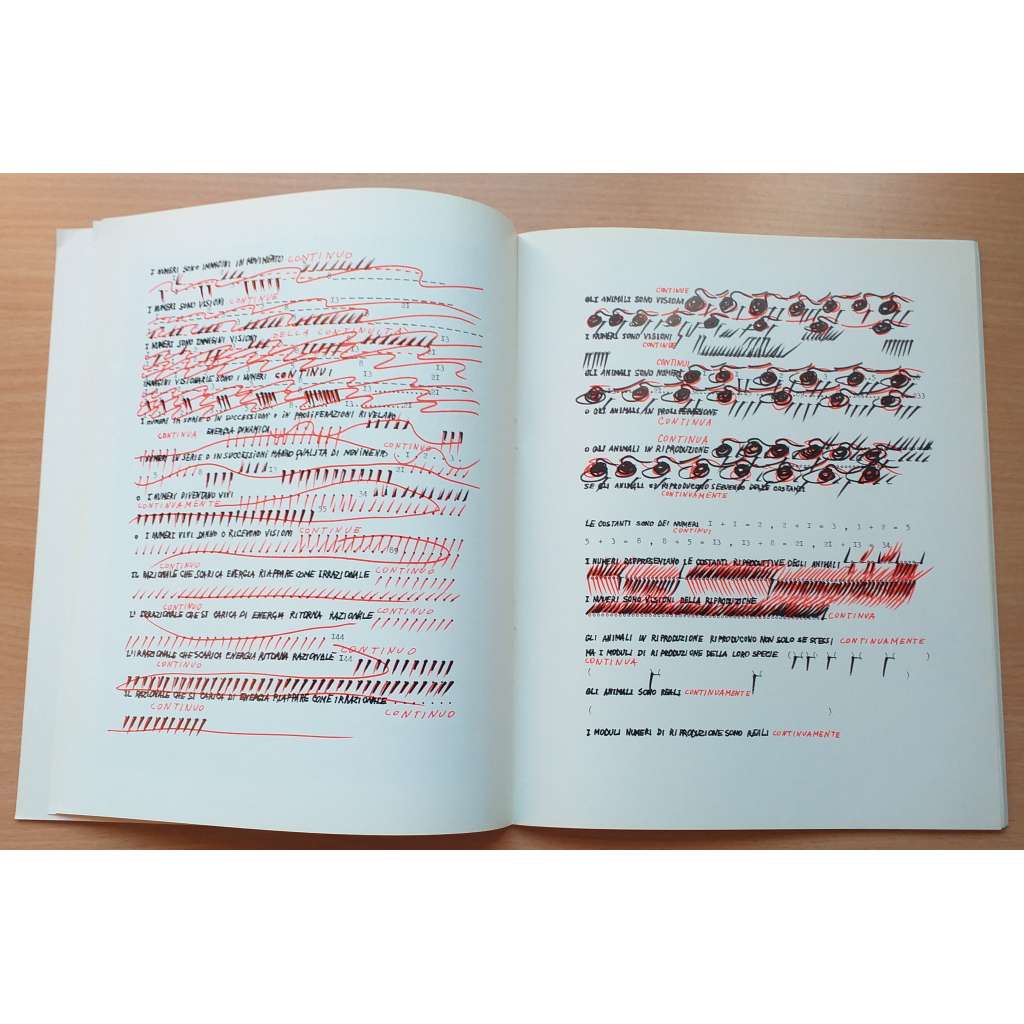 I NUMERI SONO IMMAGINI IN MOVIMENTO CONTINUO
I NUMERI SONO VISIONI CONTINUE
13
21
DELLA CONTINUITÀ
I NUMERI SONO IMMAGINI VISIONI
13
8 13
IMMAGINI VISIONARIE SONO I NUMERI CONTINUI
21
13 21
I NUMERI IN SERIE O IN SUCCESSIONI O IN PROLIFERAZIONI RIVELANO
CONTINUA ENERGIA DINAMICA
CONTINUO
I NUMERI IN SERIE O IN SUCCESSIONI HANNO QUALITÀ DI MOVIMENTO 1 2 3
5 8 13 21
O I NUMERI DIVENTANO VIVI 34
CONTINUAMENTE
55
O I NUMERI VIVI DANNO O RICEVONO VISIONI CONTINUE
89
CONTINUO
IL RAZIONALE CHE SCARICA ENERGIA RIAPPARE COME IRRAZIONALE CONTINUO
CONTINUO CONTINUO
L'IRRAZIONALE CHE SI CARICA DI ENERGIA RITORNA RAZIONALE
144
L'IRRAZIONALE CHE SCARICA ENERGIA RITORNA RAZIONALE 144 CONTINUO
CONTINUO
IL RAZIONALE CHE SI CARICA DI ENERGIA RIAPPARE COME IRRAZIONALE . . . .
CONTINUO CONTINUO
CONTINUE
GLI ANIMALI SONO VISIONI
I NUMERI SONO VISIONI
CONTINUE
CONTINUI
GLI ANIMALI SONO NUMERI
233
O GLI ANIMALI IN PROLIFERAZIONE
CONTINUA
CONTINUA
O GLI ANIMALI IN RIPRODUZIONE
SE GLI ANIMALI SI RIPRODUCONO SEGUENDO DELLE COSTANTI
CONTINUAMENTE
LE COSTANTI SONO DEI NUMERI 1 + 1 = 2 , 2 + 1 = 3 , 3 + 2 = 5
CONTINUI
5 + 3 = 8 , 8 + 5 = 13 , 13 + 8 = 21 , 21 + 13 = 34
I NUMERI RAPPRESENTANO LE COSTANTI RIPRODUTTIVE DEGLI ANIMALI
I NUMERI SONO VISIONI DELLA RIPRODUZIONE
CONTINUA
GLI ANIMALI IN RIPRODUZIONE RIPRODUCONO NON SOLO SE STESSI CONTINUAMENTE
MA I MODULI DI RIPRODUZIONE DELLA LORO SPECIE
CONTINUA
GLI ANIMALI SONO REALI CONTINUAMENTE
( )
I MODULI NUMERI DI RIPRODUZIONE SONO REALI CONTINUAMENTE